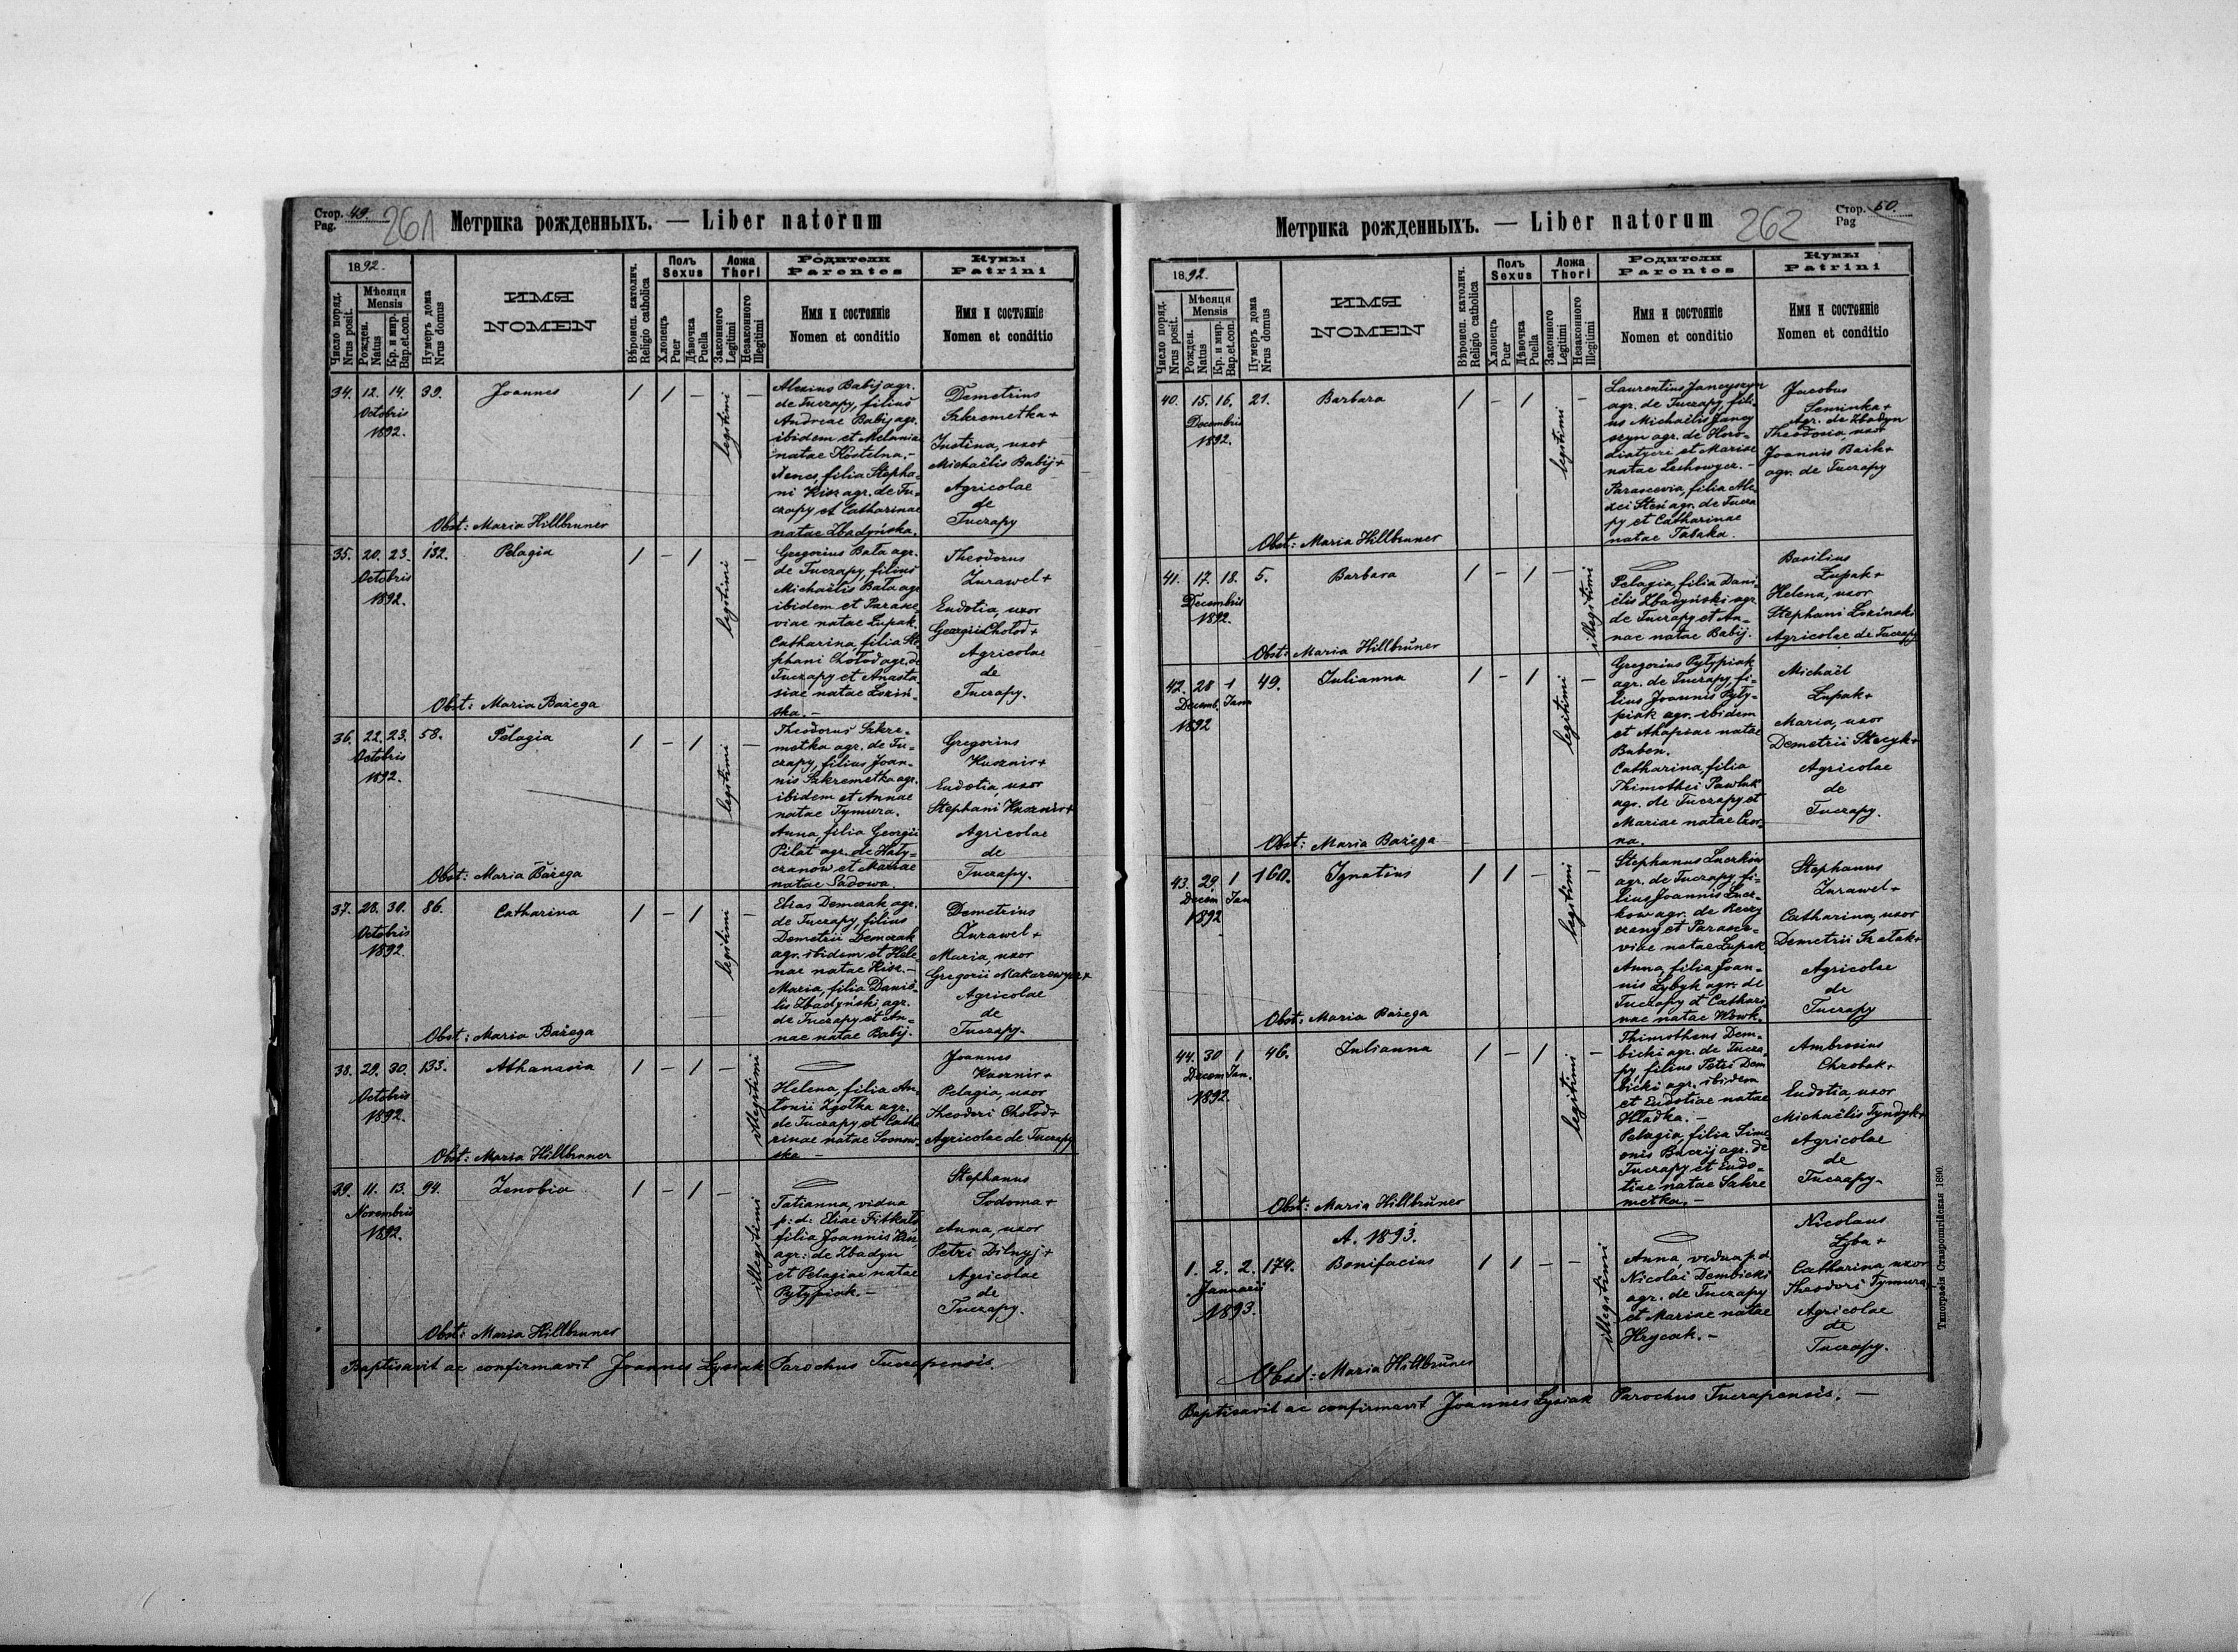 Стор. 49.
Pag.
261
Метрика рожденныхъ. — Liber natorum
1892.
Число поряд.
Nrus posit.
Мѣсяця
Mensis
Рожден.
Natus
Кр. и мир.
Bap.et.con.
Нумеръ дома
Nrus domus
ИМЯ
NOMEN
Вѣроисп. католич.
Religio catholica
Полъ
Sexus
Хлопець
Puer
Дѣвочка
Puella
Ложа
Thori
Законного
Legitimi
Незаконного
Illegitimi
Родители
Parentes
Имя и состояніе
Nomen et conditio
Кумы
Patrini
Имя и состояніе
Nomen et conditio
34. 12. 14. 39. Joannes / / — legitimi —
Octobris
1892.
Alexius Babij agr.
de Tuczapy, filius
Andreae Babij agr.
ibidem et Melaniae
natae Kostelna.—
Agnes, filia Stepha-
ni Kisz agr. de Tu-
czapy et Catharinae
natae Zbadyńska.
Demetrius
Szkremetka +
Justina, uxor
Michaëlis Babij +
Agricolae
de
Tuczapy
Obst: Maria Hillbruner
35. 20. 23. 132. Pelagia / — / legitimi —
Octobris
1892.
Gregorius Bała agr.
de Tuczapy, filius
Michaëlis Bała agr
ibidem et Parasce-
viae natae Łupak.
Catharina, filia Ste-
phani Chołod agr. de
Tuczapy et Anasta
siae natae Łoziń-
ska.—
Theodorus
Żurawel +
Eudotia, uxor
Georgii Chołod +
Agricolae
de
Tuczapy.
Obst: Maria Bařega
36. 22. 23. 58. Pelagia / — / legitimi —
Octobris
1892.
Theodorus Szkre-
metka agr. de Tu-
czapy, filius Joan-
nis Szkremetka agr.
ibidem et Annae
natae Tymura.
Anna, filia Georgii
Pilat agr. de Haly-
czanow et Mariae
natae Sadowa.
Gregorius
Kusznir +
Eudotia, uxor
Stephani Kusznir +
Agricolae
de
Tuczapy.
Obst: Maria Bařega
37. 28. 30. 86. Catharina / — / legitimi —
Octobris
1892.
Elias Demczak agr.
de Tuczapy, filius
Demetrii Demczak
agr. ibidem et Hele-
nae natae Kisz.—
Maria, filia Danië-
lis Zbadyński agr.
de Tuczapy et An-
nae natae Babij.
Demetrius
Żurawel +
Maria, uxor
Gregorii Makarewycz +
Agricolae
de
Tuczapy.
Obst: Maria Bařega
38. 29. 30. 133. Athanasia / — / — illegitimi
Octobris
1892.
Helena, filia An-
tonii Zgołka agr.
de Tuczapy et Catha
rinae natae Sosnow-
ska —
Joannes
Kusznir +
Pelagia, uxor
Theodori Chołod +
Agricolae de Tuczapy
Obst: Maria Hillbruner
39. 11. 13. 94. Zenobia / — / — illegitimi
Novembris
1892.
Tatianna, vidua
p: d: Eliae Fitkało
filia Joannis Kisz
agr: de Zbadyn
et Pelagiae natae
Pyłypiak.—
Stephanus
Sodoma +
Anna, uxor
Petri Dilnyj +
Agricolae
de
Tuczapy.
Obst: Maria Hillbruner
Baptisavit ac confirmavit Joannes Łysiak Parochus Tuczapensis.
Метрика рожденныхъ. — Liber natorum
262
Стор. 50.
Pag
1892.
Число поряд.
Nrus posit.
Мѣсяця
Mensis
Рожден.
Natus
Кр. и мир.
Bap.et.con.
Нумеръ дома
Nrus domus
ИМЯ
NOMEN
Вѣроисп. католич.
Religio catholica
Полъ
Sexus
Хлопець
Puer
Дѣвочка
Puella
Ложа
Thori
Законного
Legitimi
Незаконного
Illegitimi
Родители
Parentes
Имя и состояніе
Nomen et conditio
Кумы
Patrini
Имя и состояніе
Nomen et conditio
40. 15. 16. 21. Barbara / — / legitimi —
Decembris
1892.
Laurentius Jancyszyn
agr. de Tuczapy, fili-
us Michaëlis Jancy
szyn agr. de Horo-
diatyczi et Mariae
natae Leskowycz.—
Parascevia, filia Ale-
xii Steń agr. de Tucza
py et Catharinae
natae Tabaka.
Jacobus
Seminka +
Agr. de Zbadyn
Theodosia, uxor
Joannis Baik +
agr. de Tuczapy
Obst: Maria Hillbruner
41. 17. 18. 5. Barbara / — / — illegitimi
Decembris
1892.
Pelagia, filia Dani-
ëlis Zbadyński agr
de Tuczapy et An-
nae natae Babij.
Basilius
Łupak +
Helena, uxor
Stephani Łozinski
Agricolae de Tuczapy
Obst: Maria Hillbrüner
42. 28 1 49. Julianna / — / legitimi —
Decemb. Janu
1892
Gregorius Pyłypiak
agr. de Tuczapy, fi-
lius Joannis Pyły-
piak agr. ibidem
et Ahafiae natae
Buben.
Catharina, filia
Thimothei Pawluk
agr. de Tuczapy et
Mariae natae Czor-
na.
Michaël
Łupak +
Maria, uxor
Demetrii Stecyk +
Agricolae
de
Tuczapy.
Obst: Maria Bařega
43. 29. 1 160. Ignatius / / — legitimi —
Decem Jan
1892
Stephanus Luczkiw
agr. de Tuczapy, fi-
lius Joannis Lucz-
kow agr. de Reczy
czany et Parasce-
viae natae Łupak.
Anna, filia Joan-
nis Łybyk agr. de
Tuczapy et Cathari
nae natae Wowk.
Stephanus
Żurawel +
Catharina, uxor
Demetrii Szałak +
Agricolae
de
Tuczapy
Obst: Maria Bařega
44. 30 1 46. Julianna / — / legitimi —
Decem Jan.
1892.
Thimotheus Dem-
bicki agr. de Tucza-
py, filius Petri Dem
bicki agr. ibidem
et Eudotiae natae
Hładka.—
Pelagia, filia Sime-
onis Buczij agr. de
Tuczapy et Eudo-
tiae natae Szkre
metka.—
Ambrosius
Chrobak +
Eudotia, uxor
Michaëlis Tyndyk +
Agricolae
de
Tuczapy.
Obst: Maria Hillbrüner
A. 1893.
1. 2. 2. 174. Bonifacius / / — — illegitimi
Januarii
1893.
Anna, vidua p. d.
Nicolai Dembicki
agr. de Tuczapy
et Mariae natae
Hrycak.—
Nicolaus
Łyba +
Catharina, uxor
Theodori Tymura,
Agricolae
de
Tuczapy.
Obst: Maria Hillbrüner
Baptisavit ac confirmavit Joannes Łysiak Parochus Tuczapensis.—
Типографія Ставропигійская 1890.